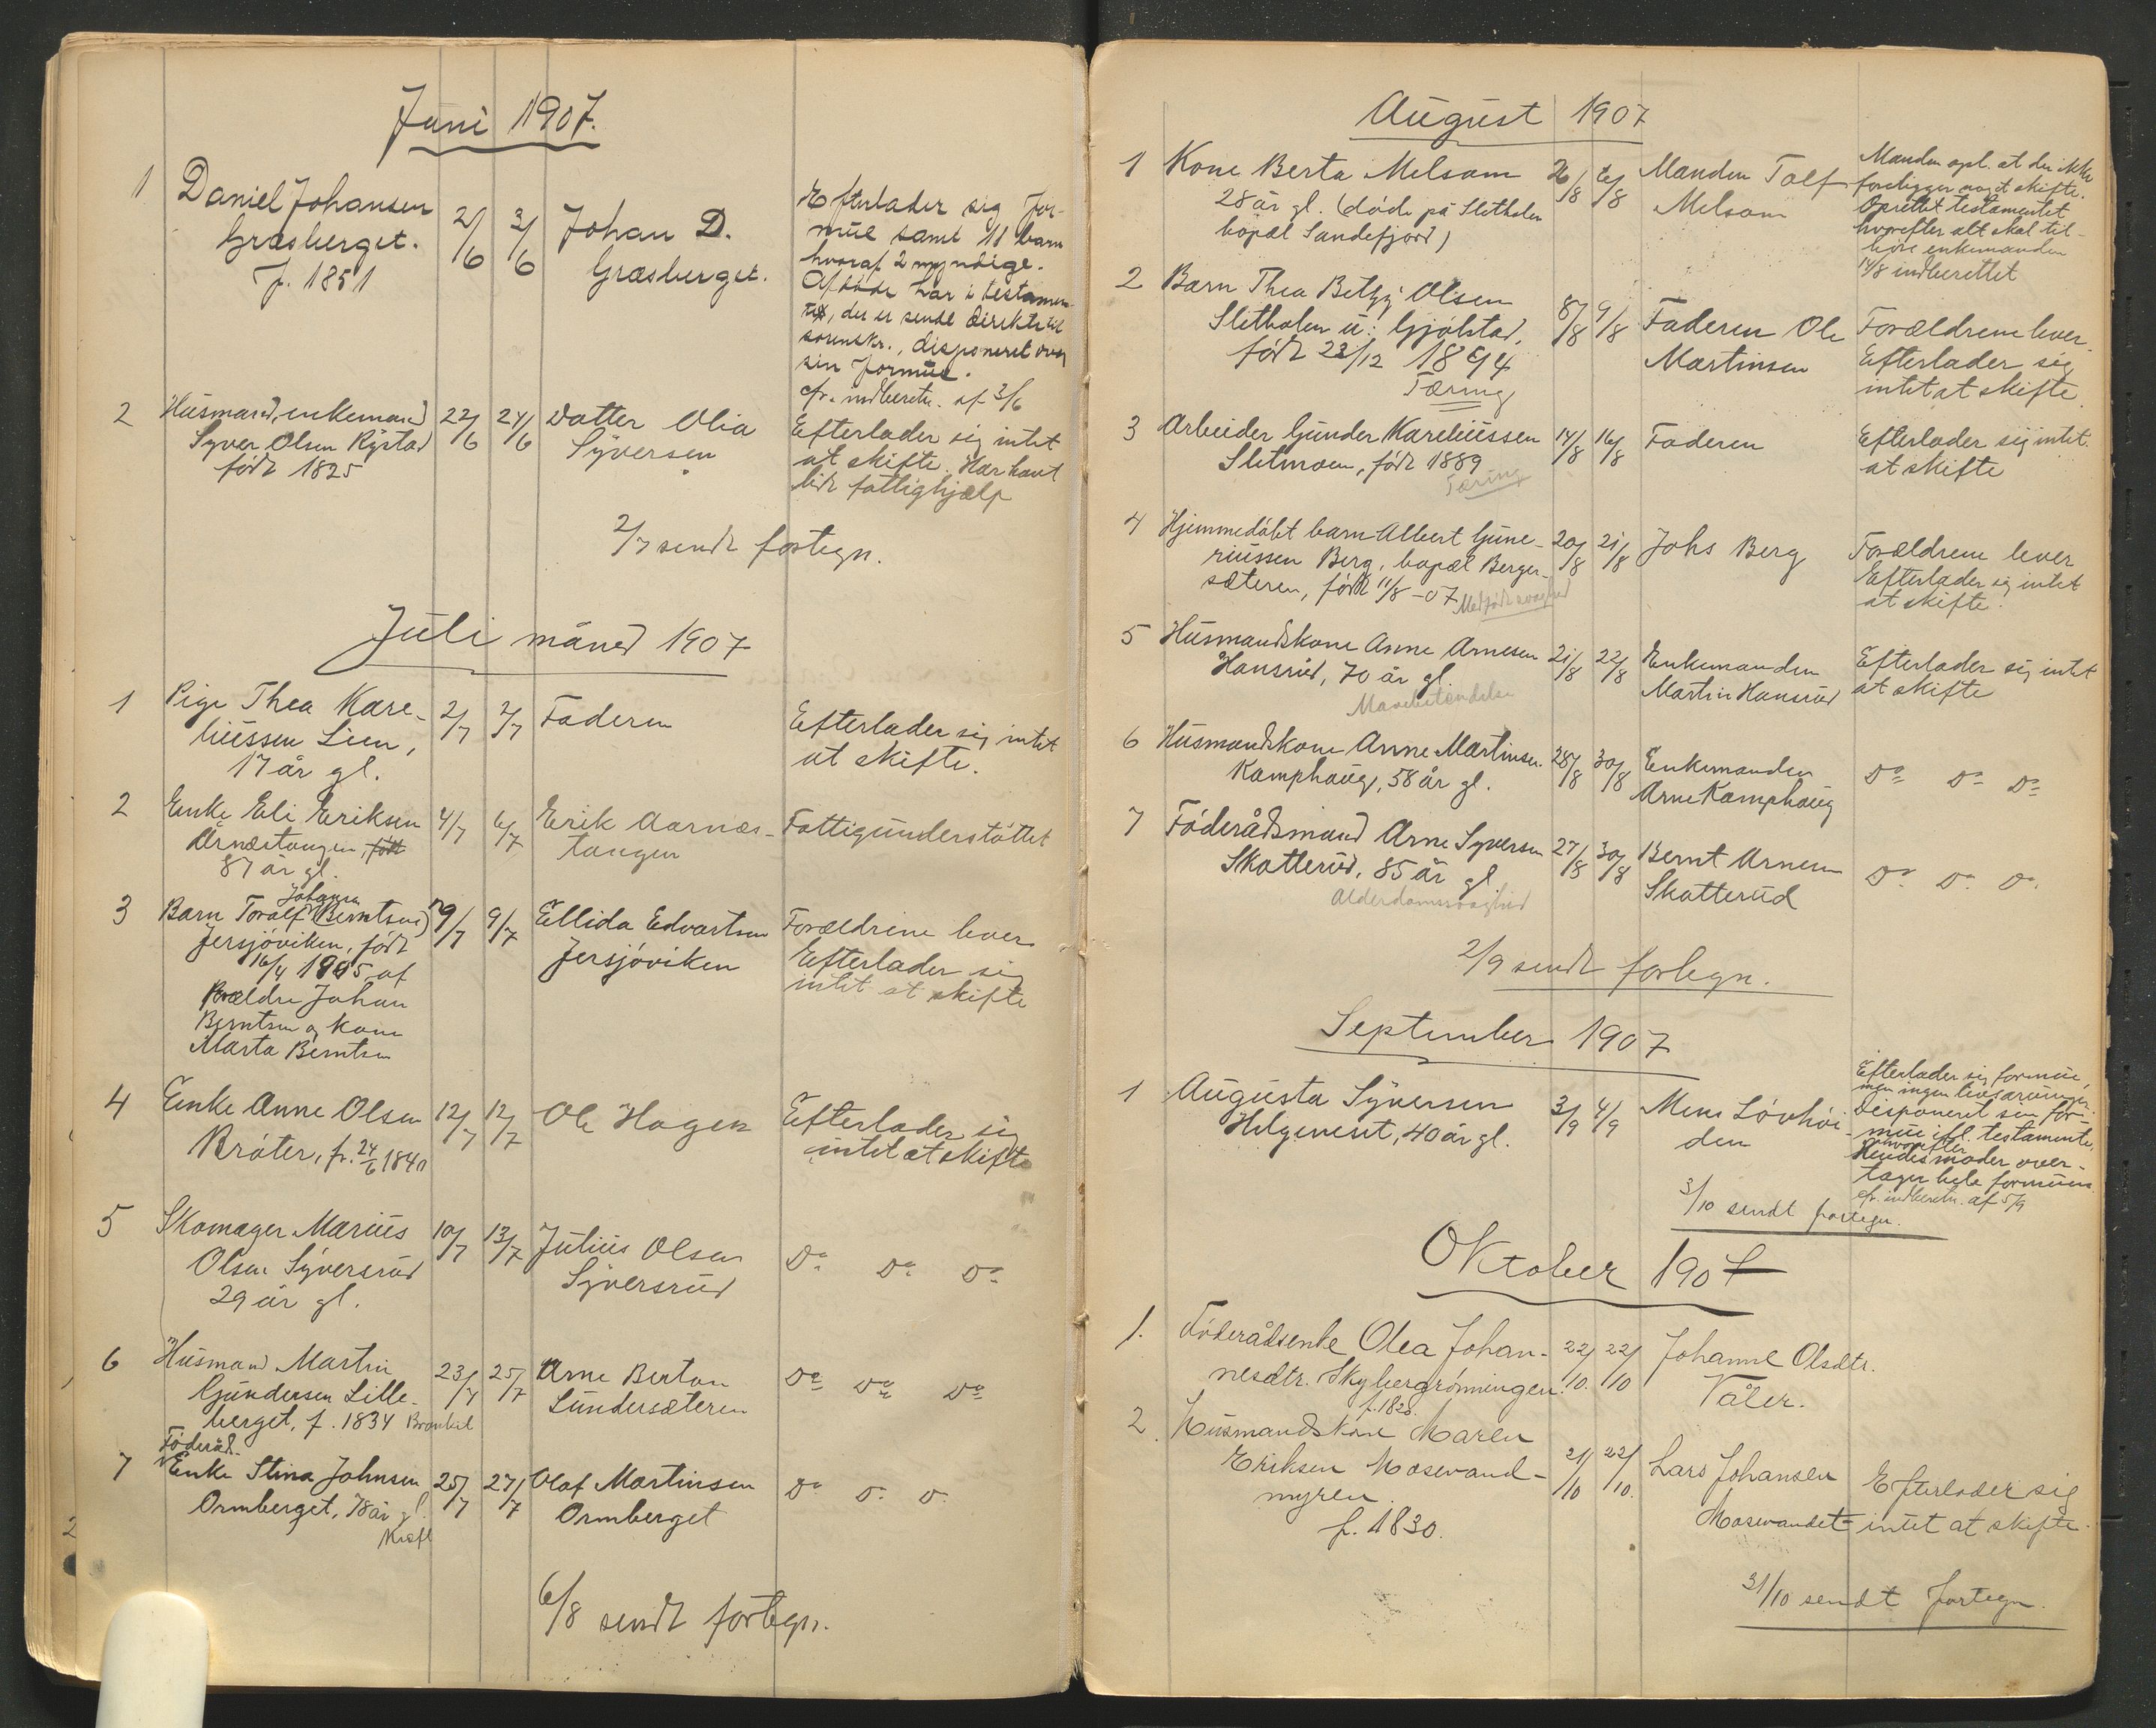 Juni 1907.
1 Daniel Johansen
Græsberget.
f. 1851
2/6 3/6
Johan D.
Græsberget.
Efterlader sig for-
mue samt 11 barn
hvoraf 2 myndige.
Afdøde har i testamen-
tet, der er sendt direkte til
sorenskr., disponeret over
sin formue.
cfr. indberetn. af 3/6
2 Husmand, enkemand
Syver Olsen Rystad
født 1825
22/6 24/6
Datter Olia
Syversen
Efterlader sig intet
at skifte. Har havt
lidt fattighjælp
2/7 sendt fortegn.
Juli måned 1907
1 Pige Thea Kare-
liussen Lien,
17 år gl.
2/7 2/7
Faderen
Efterlader sig intet
at skifte.
2 Enke Eli Eriksen
Årnæstangen, født
87 år gl.
4/7 6/7
Erik Aarnæs-
tangen
Fattigunderstøttet
3 Barn Toralf Johansen (Berntsen)
Jersjøviken, født
16/4 1905 af
Forældre Johan
Berntsen og kone
Marta Berntsen
9/7 9/7
Ellida Edvartsen
Jersjøviken
Forældrene lever
Efterlader sig
intet at skifte
4 Enke Anne Olsen
Bråter, f. 24/6 1840
12/7 12/7
Ole Hagen
Efterlader sig
intet at skifte
5 Skomager Marius
Olsen Syversrud
29 år gl.
10/7 13/7
Julius Olsen
Syversrud
Do Do Do
6 Husmand Martin
Gundersen Lille-
berget, f. 1834
23/7 25/7
Arne Berton
Lundersæteren
Do Do Do
Føderåd-
7 Enke Stina Johnsen
Ormberget, 78 år gl.
Kræft
25/7 27/7
Olaf Martinsen
Ormberget
Do D. D.
6/8 sendt fortegn.
August 1907
1 Kone Berta Melsom
28 år gl. (døde på Sletholen
bopæl Sandefjord)
Manden Tolf
Melsom
Manden opl. at der ikke
foreligger noget skifte.
Oprettet testamentet
hvorefter alt skal til-
høre enkemanden
14/8 indberettet
2 Barn Thea Betzy Olsen
Sletholen u: Gjølstad,
født 23/12 1894
Tæring
8/8 9/8
Faderen Ole
Martinsen
Forældrene lever.
Efterlader sig
intet at skifte.
3 Arbeider Gunder Kareliussen
Sletmoen, født 1889
Tæring
14/8 16/8
Faderen
Efterlader sig intet
at skifte
4 Hjemmedøbt barn Albert Gune-
riussen Berg, bopæl Berger-
sæteren, født 11/8 -07
Medfødt svaghed
20/8 21/8
Johs Berg
Forældrene lever
Efterlader sig intet
at skifte.
5 Husmandskone Anne Arnesen
Hansrud, 70 år gl.
21/8 22/8
Enkemanden
Martin Hansrud
Efterlader sig intet
at skifte
6 Husmandskone Anne Martinsen
Kamphaug, 58 år gl.
28/8 30/8
Enkemanden
Arne Kamphaug
Do D- Do
7 Føderådsmand Arne Syversen
Skatterud, 85 år gl.
Alderdomssvaghed
27/8 30/8
Bernt Arnesen
Skatterud
Do Do Do.
2/9 sendt fortegn.
September 1907
1 Augusta Syversen
Helgeneset, 40 år gl.
3/9 4/9
Mens Løvhøi-
den
Efterlader sig formue,
men ingen livsarvinger.
Disponeret sin for-
mue ifl. testamente,
hvorefter
Hendes moder over-
tager hele formuen
cfr. indberetn. af 5/9
3/10 sendt fortegn.
Oktober 1907
1. Føderådsenke Olea Johan-
nesdtr. Skybergrønningen.
f. 1828.
22/10. 22/10
Johanne Olsdtr.
Våler.
2. Husmandskone Maren
Eriksen Mosevand-
myren.
f. 1830.
21/10 22/10.
Lars Johansen
Mosevandet
Efterlader sig
intet at skifte.
31/10 sendt fortegn.